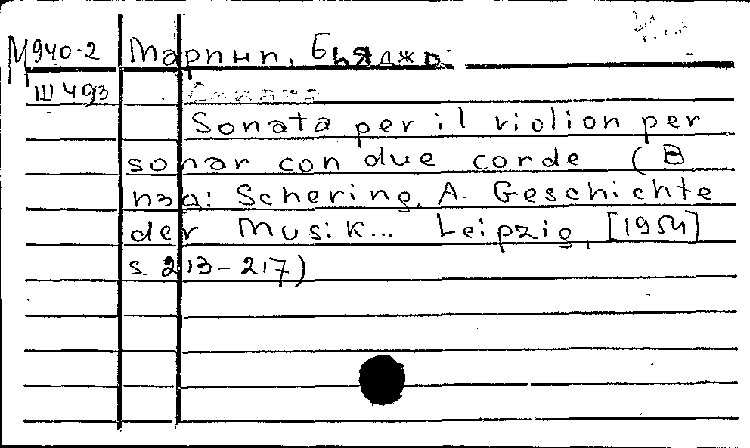 М940-2 Марини, Бьяджо.
Ш493 Соната
Sonata per il violion per
sonar con due corde (В
изд: Schering, A. Geschichte
der Musik... Leipzig, [1954]
s. 213-217)